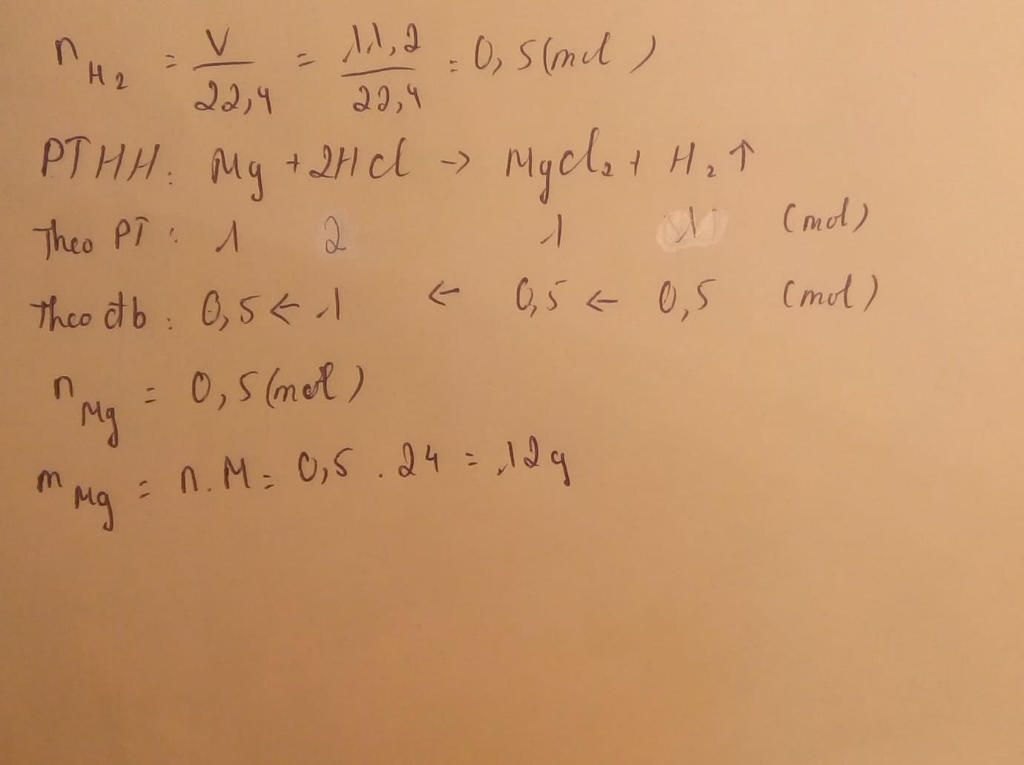 n H2 = V/22,4 = 11,2/22,4 = 0,5(mol)
PTHH: Mg + 2HCl → MgCl2 + H2↑
Theo PT: 1 2 1 1 (mol)
Theo đb: 0,5 ← 1 ← 0,5 ← 0,5 (mol)
n Mg = 0,5(mol)
m Mg = n.M = 0,5 . 24 = 12g